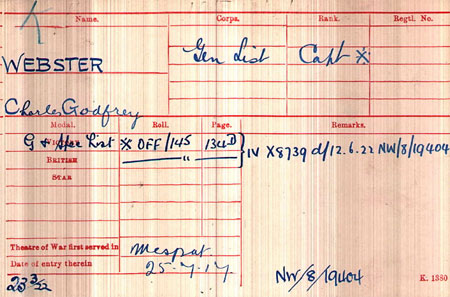 Name. Corps. Rank. Regtl. No.
WEBSTER Gen List Capt X
Charles Godfrey
Medal. Roll. Page. Remarks.
VICTORY X OFF/145 134D IV X8739 d/12.6.22 NW/8/19404
BRITISH — " —
STAR
Theatre of War first served in Mespot
Date of entry therein 25-7-17
NW/8/19404 K. 1380